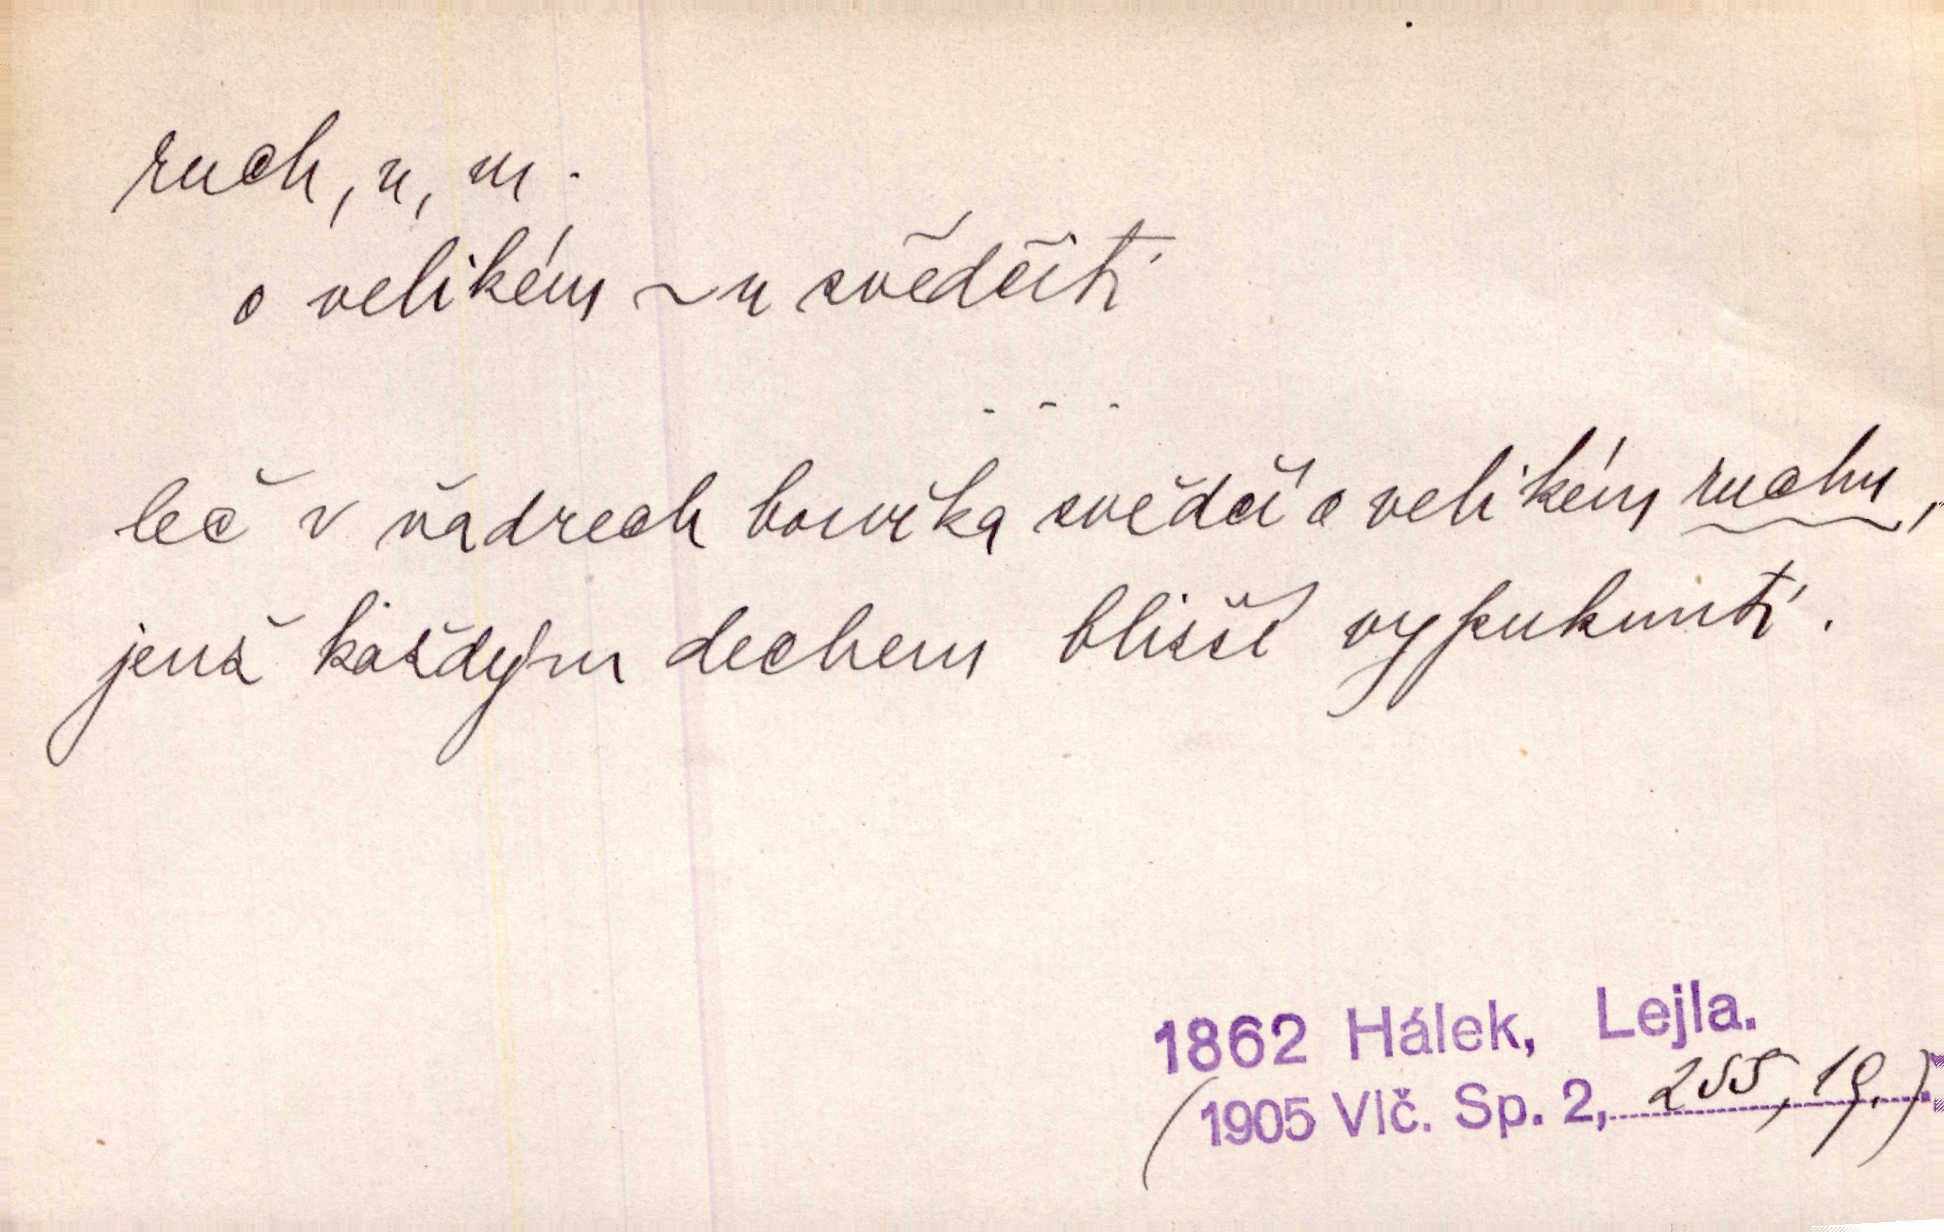 ruch, u, m.
o velikém ~u svědčiti
- - -
leč v ňadrech bouřka svědčí o velikém ruchu,
jenž každým dechem blížší vypuknutí.
1862 Hálek, Lejla.
(1905 Vlč. Sp. 2, 255, 19.)